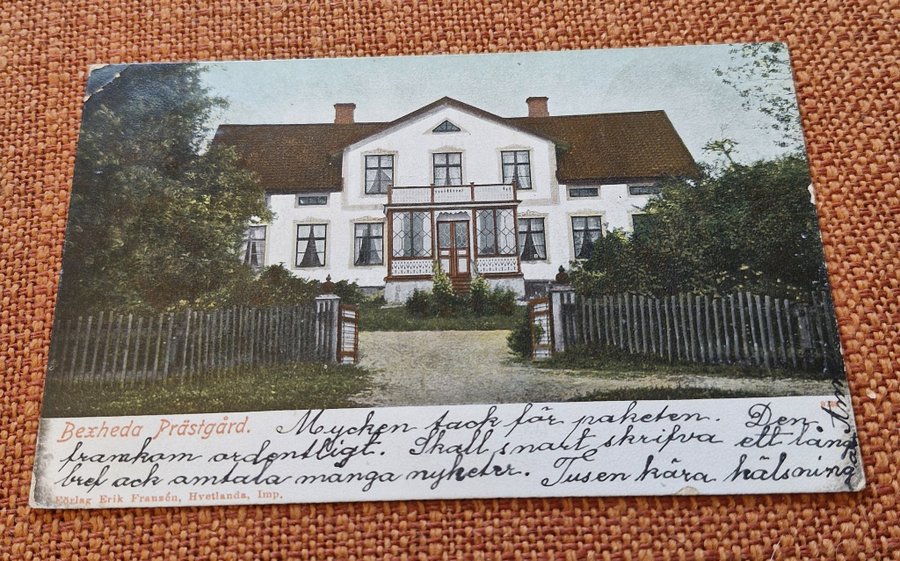 Bexheda Prästgård.
Mycken tack för paketen. Den
framkom ordentligt. Skall snart skrifva ett lång
bref ack amtala många nyheter. Tusen kära hälsning
Förlag Erik Franzén, Hvetlanda, Imp.